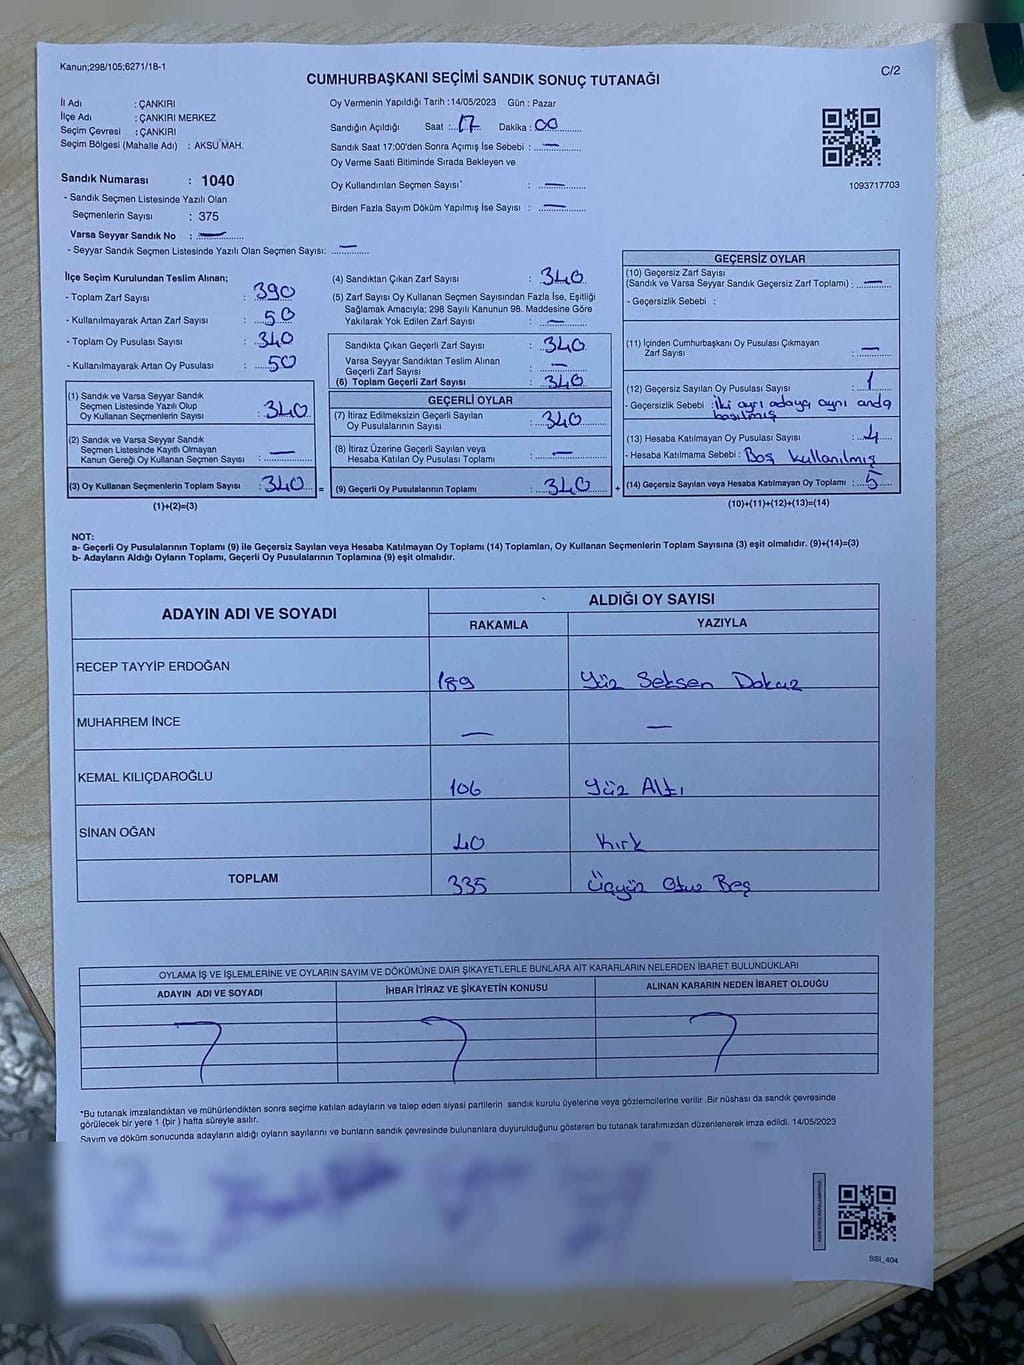 Kanun;298/105;6271/18-1
CUMHURBAŞKANI SEÇİMİ SANDIK SONUÇ TUTANAĞI
C/2
İl Adı : ÇANKIRI
İlçe Adı : ÇANKIRI MERKEZ
Seçim Çevresi : ÇANKIRI
Seçim Bölgesi (Mahalle Adı) : AKSU MAH.
Sandık Numarası : 1040
- Sandık Seçmen Listesinde Yazılı Olan
Seçmenlerin Sayısı : 375
Varsa Seyyar Sandık No : —
- Seyyar Sandık Seçmen Listesinde Yazılı Olan Seçmen Sayısı: —
Oy Vermenin Yapıldığı Tarih : 14/05/2023 Gün : Pazar
Sandığın Açıldığı Saat : 17 Dakika : 00
Sandık Saat 17:00'den Sonra Açımış İse Sebebi : —
Oy Verme Saati Bitiminde Sırada Bekleyen ve
Oy Kullandırılan Seçmen Sayısı : —
Birden Fazla Sayım Döküm Yapılmış İse Sayısı : —
1093717703
İlçe Seçim Kurulundan Teslim Alınan;
- Toplam Zarf Sayısı : 390
- Kullanılmayarak Artan Zarf Sayısı : 50
- Toplam Oy Pusulası Sayısı : 340
- Kullanılmayarak Artan Oy Pusulası : 50
(1) Sandık ve Varsa Seyyar Sandık
Seçmen Listesinde Yazılı Olup
Oy Kullanan Seçmenlerin Sayısı : 340
(2) Sandık ve Varsa Seyyar Sandık
Seçmen Listesinde Kayıtlı Olmayan
Kanun Gereği Oy Kullanan Seçmen Sayısı : —
(3) Oy Kullanan Seçmenlerin Toplam Sayısı : 340 =
(1)+(2)=(3)
(4) Sandıktan Çıkan Zarf Sayısı : 340
(5) Zarf Sayısı Oy Kullanan Seçmen Sayısından Fazla İse, Eşitliği
Sağlamak Amacıyla; 298 Sayılı Kanunun 98. Maddesine Göre
Yakılarak Yok Edilen Zarf Sayısı : —
Sandıkta Çıkan Geçerli Zarf Sayısı : 340
Varsa Seyyar Sandıktan Teslim Alınan
Geçerli Zarf Sayısı : —
(6) Toplam Geçerli Zarf Sayısı : 340
GEÇERLİ OYLAR
(7) İtiraz Edilmeksizin Geçerli Sayılan
Oy Pusulalarının Sayısı : 340
(8) İtiraz Üzerine Geçerli Sayılan veya
Hesaba Katılan Oy Pusulası Toplamı : —
(9) Geçerli Oy Pusulalarının Toplamı : 340 +
GEÇERSİZ OYLAR
(10) Geçersiz Zarf Sayısı
(Sandık ve Varsa Seyyar Sandık Geçersiz Zarf Toplamı) : —
- Geçersizlik Sebebi :
(11) İçinden Cumhurbaşkanı Oy Pusulası Çıkmayan
Zarf Sayısı : —
(12) Geçersiz Sayılan Oy Pusulası Sayısı : 1
- Geçersizlik Sebebi : İki ayrı adaya aynı anda
basılmış
(13) Hesaba Katılmayan Oy Pusulası Sayısı : 4
- Hesaba Katılmama Sebebi : Boş kullanılmış
(14) Geçersiz Sayılan veya Hesaba Katılmayan Oy Toplamı : 5
(10)+(11)+(12)+(13)=(14)
NOT:
a- Geçerli Oy Pusulalarının Toplamı (9) ile Geçersiz Sayılan veya Hesaba Katılmayan Oy Toplamı (14) Toplamları, Oy Kullanan Seçmenlerin Toplam Sayısına (3) eşit olmalıdır. (9)+(14)=(3)
b- Adayların Aldığı Oyların Toplamı, Geçerli Oy Pusulalarının Toplamına (9) eşit olmalıdır.
ADAYIN ADI VE SOYADI
ALDIĞI OY SAYISI
RAKAMLA YAZIYLA
RECEP TAYYİP ERDOĞAN 189 Yüz Seksen Dokuz
MUHARREM İNCE — —
KEMAL KILIÇDAROĞLU 106 Yüz Altı
SİNAN OĞAN 40 Kırk
TOPLAM 335 Üçyüz Otuz Beş
OYLAMA İŞ VE İŞLEMLERİNE VE OYLARIN SAYIM VE DÖKÜMÜNE DAİR ŞİKAYETLERLE BUNLARA AİT KARARLARIN NELERDEN İBARET BULUNDUKLARI
ADAYIN ADI VE SOYADI İHBAR İTİRAZ VE ŞİKAYETİN KONUSU ALINAN KARARIN NEDEN İBARET OLDUĞU
*Bu tutanak imzalandıktan ve mühürlendikten sonra seçime katılan adayların ve talep eden siyasi partilerin sandık kurulu üyelerine veya gözlemcilerine verilir .Bir nüshası da sandık çevresinde
görülecek bir yere 1 (bir ) hafta süreyle asılır.
Sayım ve döküm sonucunda adayların aldığı oyların sayılarını ve bunların sandık çevresinde bulunanlara duyurulduğunu gösteren bu tutanak tarafımızdan düzenlenerek imza edildi. 14/05/2023
SSI_404